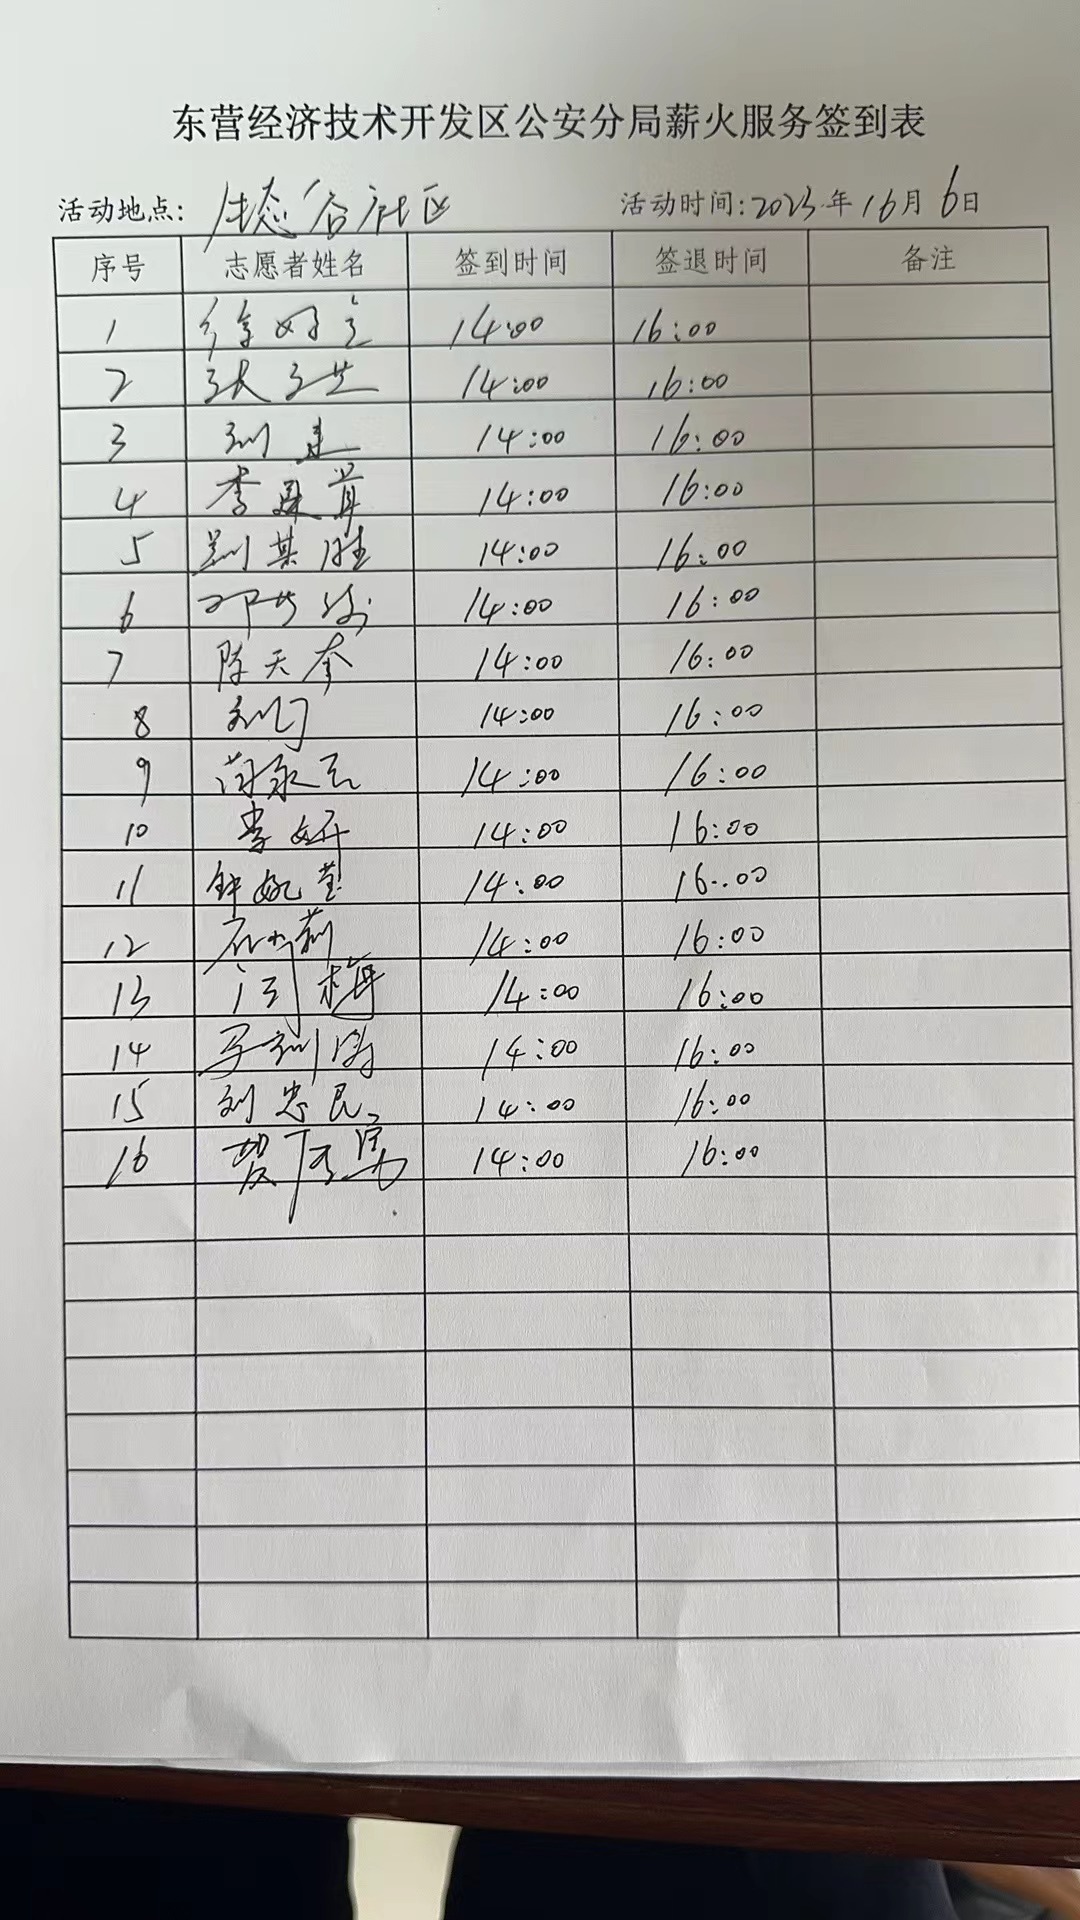 东营经济技术开发区公安分局薪火服务签到表
活动地点: 生态谷社区 活动时间: 2023年 10月 6日
序号 志愿者姓名 签到时间 签退时间 备注
1 14:00 16:00
2 张 14:00 16:00
3 刘建 14:00 16:00
4 李 14:00 16:00
5 刘其胜 14:00 16:00
6 邓 14:00 16:00
7 陈天奎 14:00 16:00
8 刘 14:00 16:00
9 14:00 16:00
10 李妍 14:00 16:00
11 钟 莹 14:00 16:00
12 莉 14:00 16:00
13 梅 14:00 16:00
14 14:00 16:00
15 刘忠民 14:00 16:00
16 贺 14:00 16:00